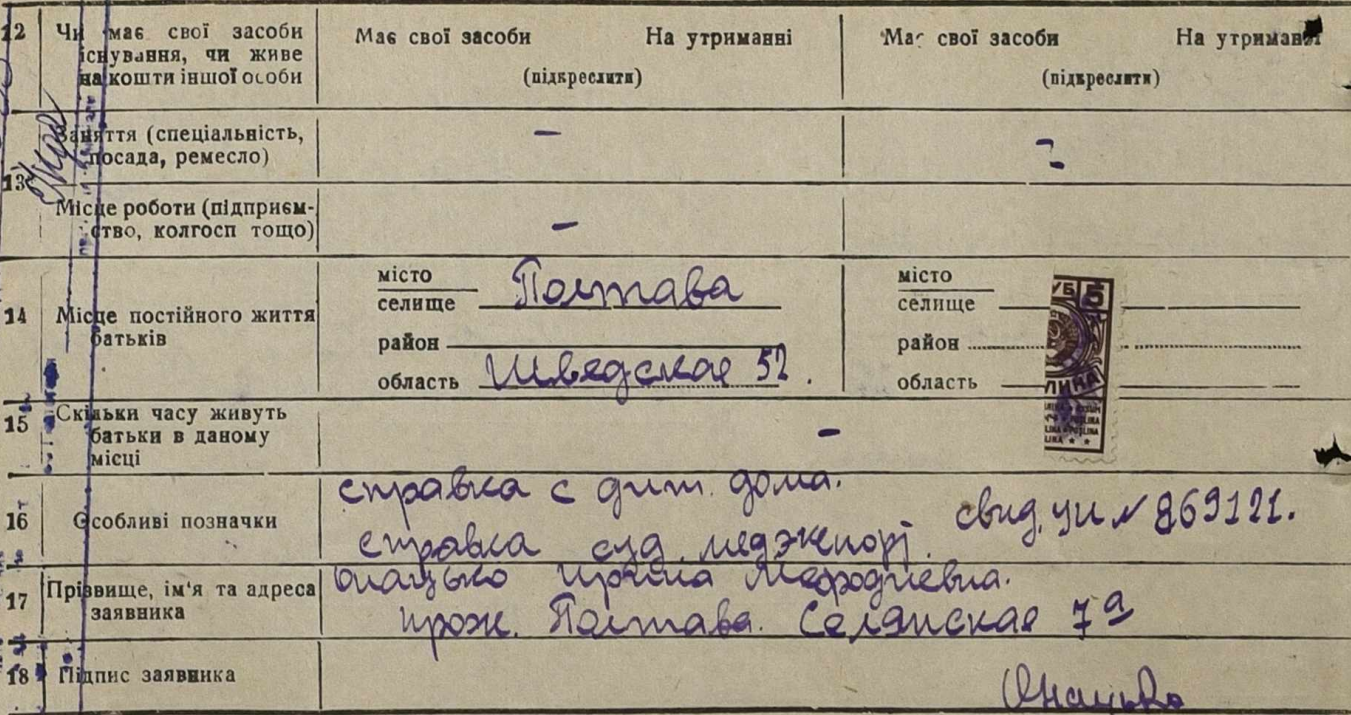 12 Чи має свої засоби існування, чи живе на кошти іншої особи
Має свої засоби На утриманні
(підкреслити)
Має свої засоби На утриманні
(підкреслити)
13
Заняття (спеціальність, посада, ремесло) –
Місце роботи (підприєм-
ство, колгосп тощо) –
14 Місце постійного життя батьків
місто
селище Полтава
район
область Шведская 52.
місто
селище
район
область
5
15 Скільки часу живуть батьки в даному місці –
16 Особливі позначки
справка с дит. дома.
справка суд. медэкспорт. свид. УИ № 869121.
17 Прізвище, ім'я та адреса заявника
Онацько Ирина Мефодиевна.
прож. Полтава. Селянская 7а
18 Підпис заявника
Онацько